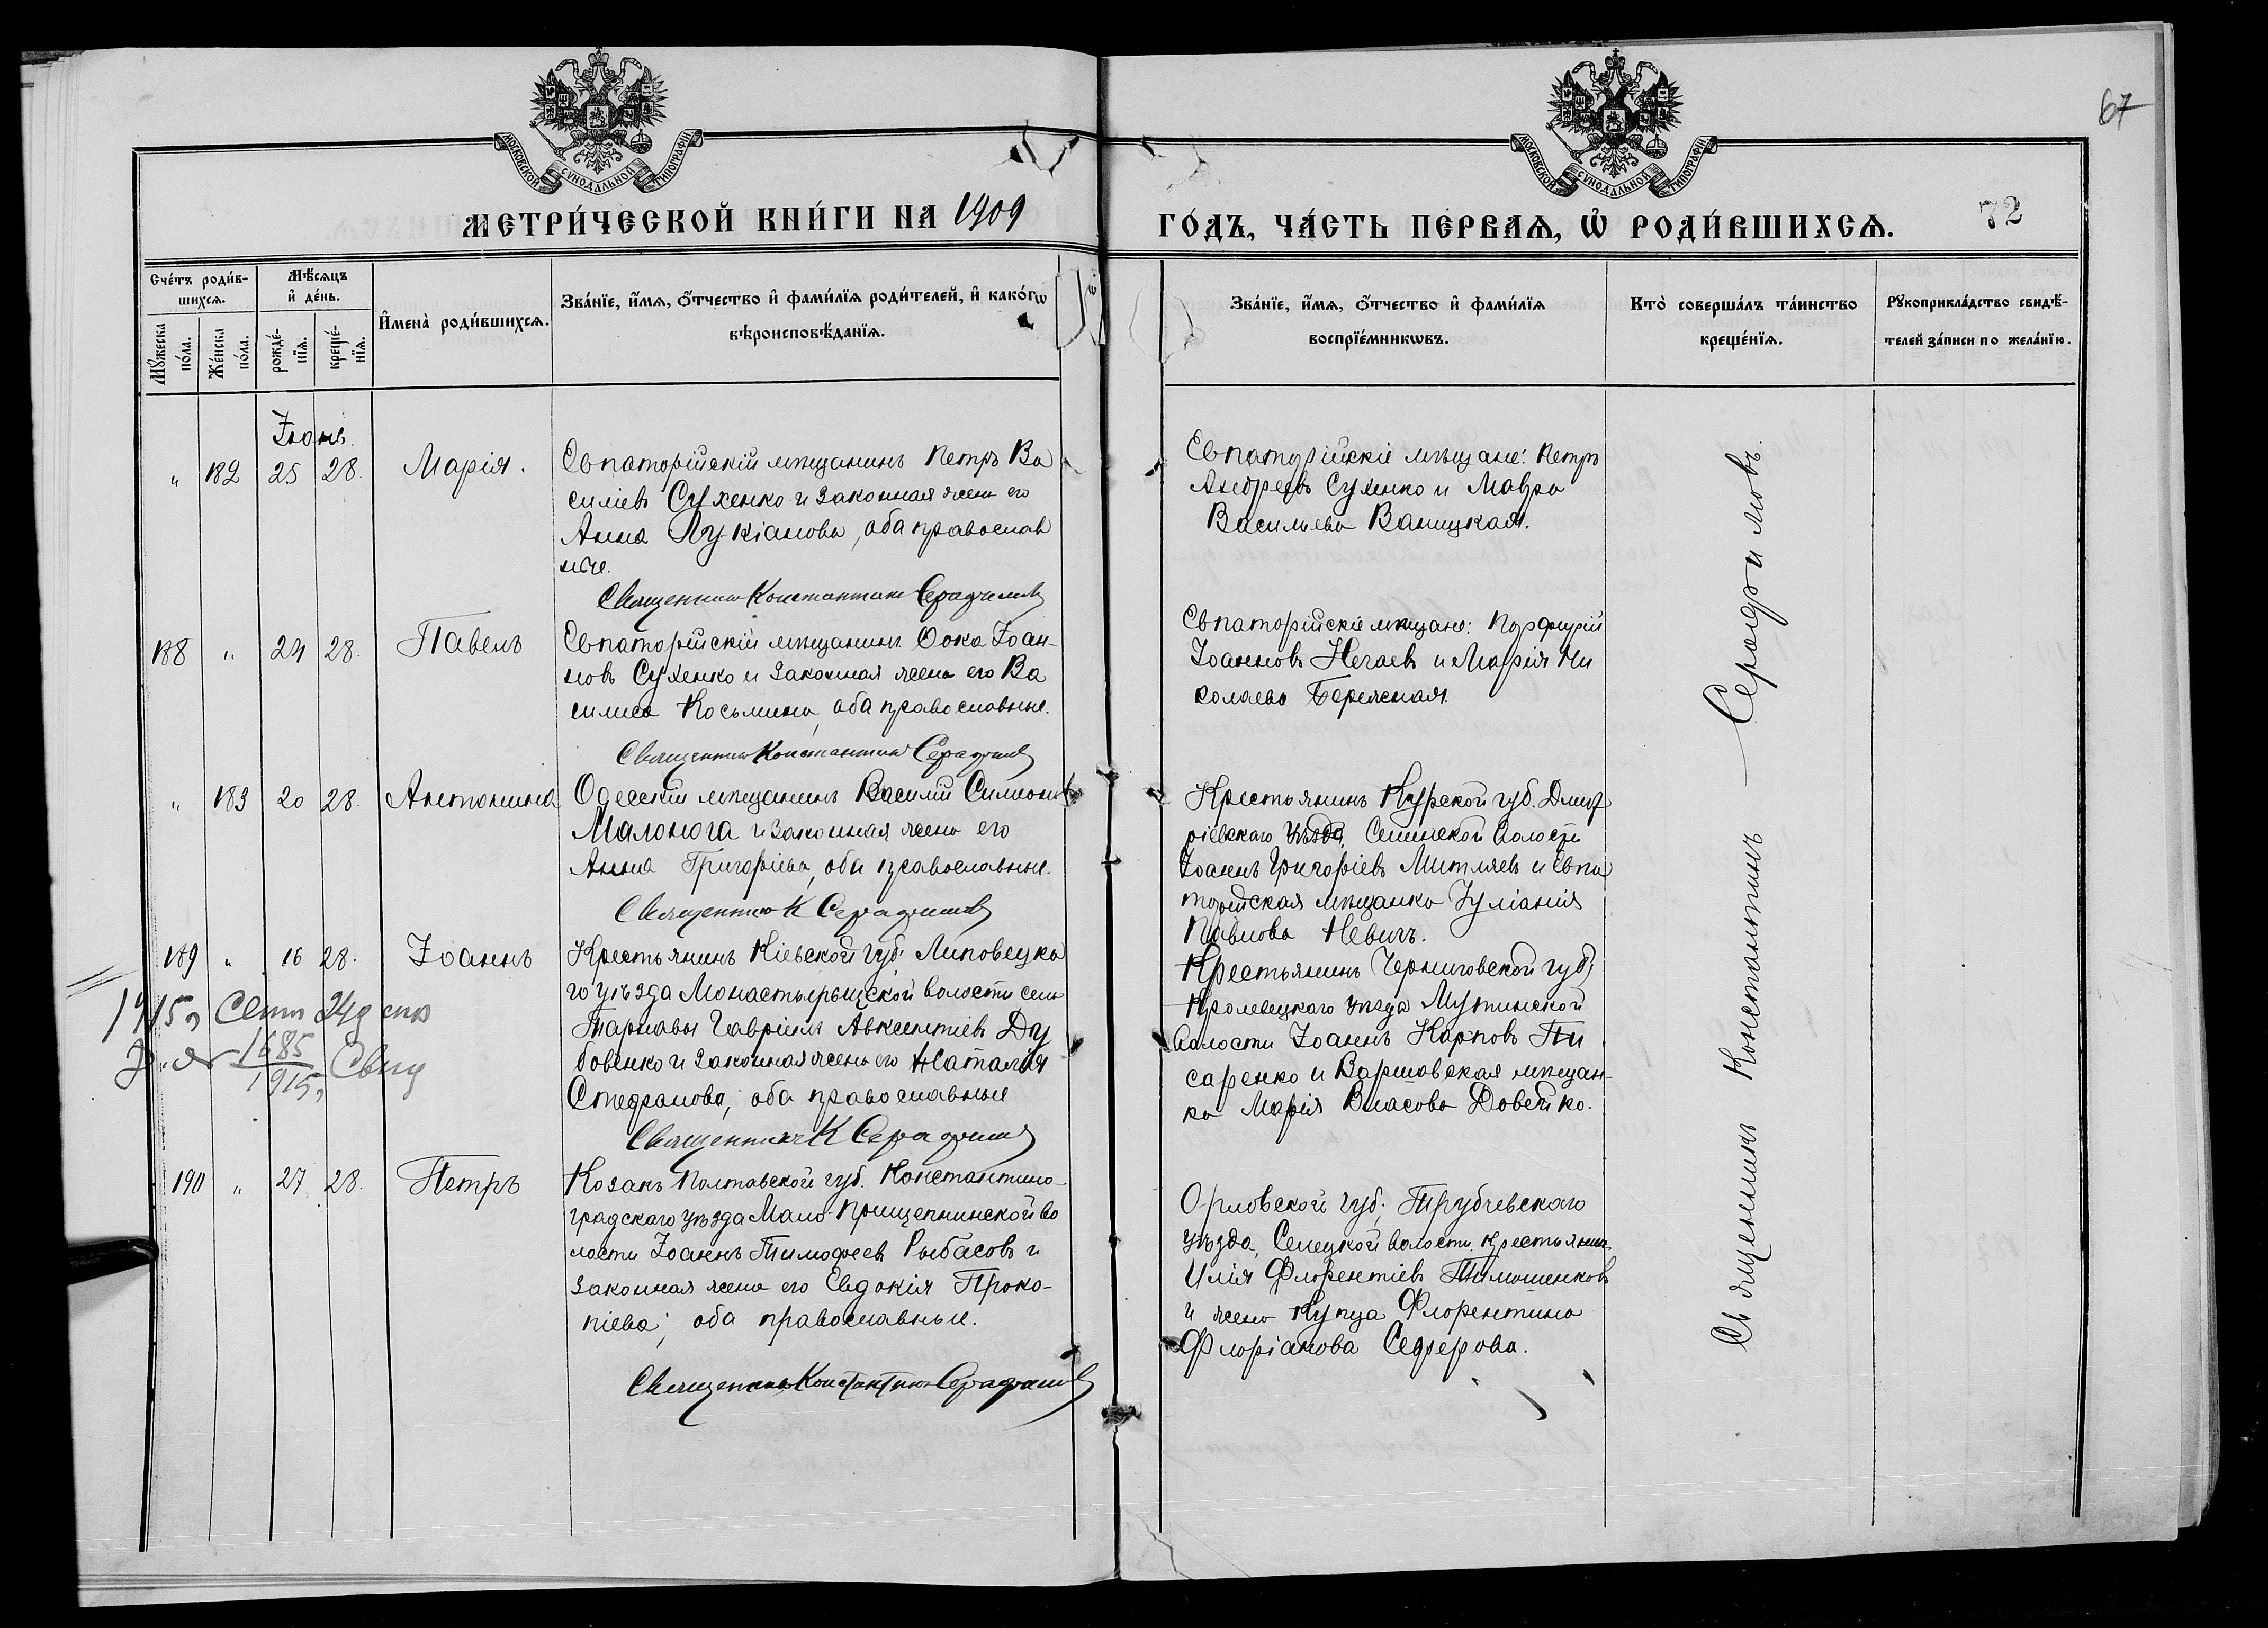 67
МОСКОВСКОЙ СѴНОДАЛЬНОЙ ТИПОГРАФІИ
МОСКОВСКОЙ СѴНОДАЛЬНОЙ ТИПОГРАФІИ
МЕТРИ́ЧЕСКОЙ КНИ́ГИ НА 1909
ГО́ДЪ, ЧА́СТЬ ПЕ́РВАѦ, Ѡ҆ РОДИ́ВШИХСѦ.
72
Сче́тъ роди́в-
шихсѧ.
Мꙋ́жеска
по́ла.
Же́нска
по́ла.
Мѣ́сѧцъ
и҆ де́нь.
рожде́-
нїѧ.
креще́-
нїѧ.
И҆мена̀ роди́вшихсѧ.
Зва́нїе, и҆́мѧ, ѻ҆́тчество и҆ фами́лїѧ роди́телей, и҆ како́гѡ
вѣроисповѣ́данїѧ.
Зва́нїе, и҆́мѧ, ѻ҆́тчество и҆ фами́лїѧ
воспрїе́мникѡвъ.
Кто̀ соверша́лъ та́инство
креще́нїѧ.
Рꙋкоприкла́дство свидѣ́-
телей за́писи по жела́нїю.
Іюнь.
" 182 25 28. Марія.
Евпаторійскій мѣщанинъ Петръ Ва
силіевъ Сухенко и законная жена его
Анна Лукіанова, оба православ
ные.
Священникъ Константинъ Серафимовъ
Евпаторійскіе мѣщане: Петръ
Андреевъ Сухенко и Мавра
Васильева Ваницкая.
188 " 24 28. Павелъ
Евпаторійскій мѣщанинъ Ѳока Іоан-
новъ Сухенко и законная жена его Ва
силиса Косьмина, оба православные.
Священникъ Константинъ Серафимовъ
Евпаторійскіе мѣщане: Порфирій
Іоанновъ Нечаевъ и Марія Ни
колаева Бережная.
" 183 20 28. Антонина
Одесскій мѣщанинъ Василій Симоновъ
Малонога и законная жена его
Анна Григоріева, оба православные.
Священникъ К Серафимовъ
Крестьянинъ Курской губ. Дмит
ріевскаго уѣзда, волости
Іоаннъ Григоріевъ Митляевъ и Евпа
торійская мѣщанка Іуліанія
Павлова Невичъ.
189 " 16 28. Іоаннъ
Крестьянинъ Кіевской губ. Липовецка
го уѣзда Монастырыщской волости села
Тарнавы Гавріилъ Авксентіевъ Ду
бовенко и законная жена его Наталія
Стефанова, оба православные
Священникъ К Серафимовъ
Крестьянинъ Черниговской губ.
Кролевецкаго уѣзда Мутинской
волости Іоаннъ Карповъ Пи
саренко и Варшавская мѣщан-
ка Марія Власова Довейко.
1915 г Сент 24 д
1685
1915 г. Свид
190 " 27 28. Петръ
Козакъ Полтавской губ. Константино-
градскаго уѣзда Мало-Прищепинской во
лости Іоаннъ Тимофеевъ Рыбасовъ и
законная жена его Евдокія Проко-
піева; оба православные.
Священникъ Константинъ Серафимовъ
Орловской губ. Трубчевскаго
уѣзда, Селецкой волости, крестьянинъ
Илія Флорентіевъ Тимошенковъ
и жена купца Флорентина
Флоріанова Сеферова.
Священникъ Константинъ Серафимовъ.